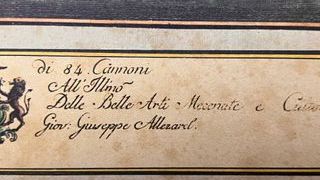 di 84. Cannoni
All' Illmõ
Delle Belle Arti Mecenate e
Giov: Giuseppe Allezard.